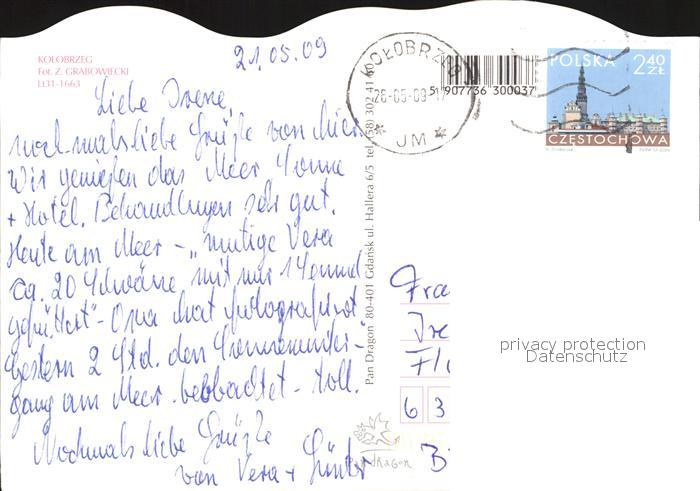 KOŁOBRZEG
Fot. Z. GRABOWIECKI
Lt31-1663
21.05.09
Liebe Irene,
nochmals liebe Grüße von hier.
Wir genießen das Meer Sonne
+ Hotel. Behandlungen sehr gut.
Heute am Meer - "mutige Vera
ca. 20 Schwäne mit nur 1 Hand
gefüttert" - Opa hat fotografiert
Gestern 2 Std. den Sonnenunter-
gang am Meer beobachtet - toll.
Nochmals liebe Grüße
von Vera + Günter
Pan Dragon 80-401 Gdańsk ul. Hallera 6/5 tel. (58) 302 41
KOŁOBRZEG
26-05-09-17
* JM *
5 907736 300037
POLSKA 2,40 ZŁ
CZĘSTOCHOWA
Fra
Ire
Fl
6 3
B
pan dragon
privacy protection
Datenschutz